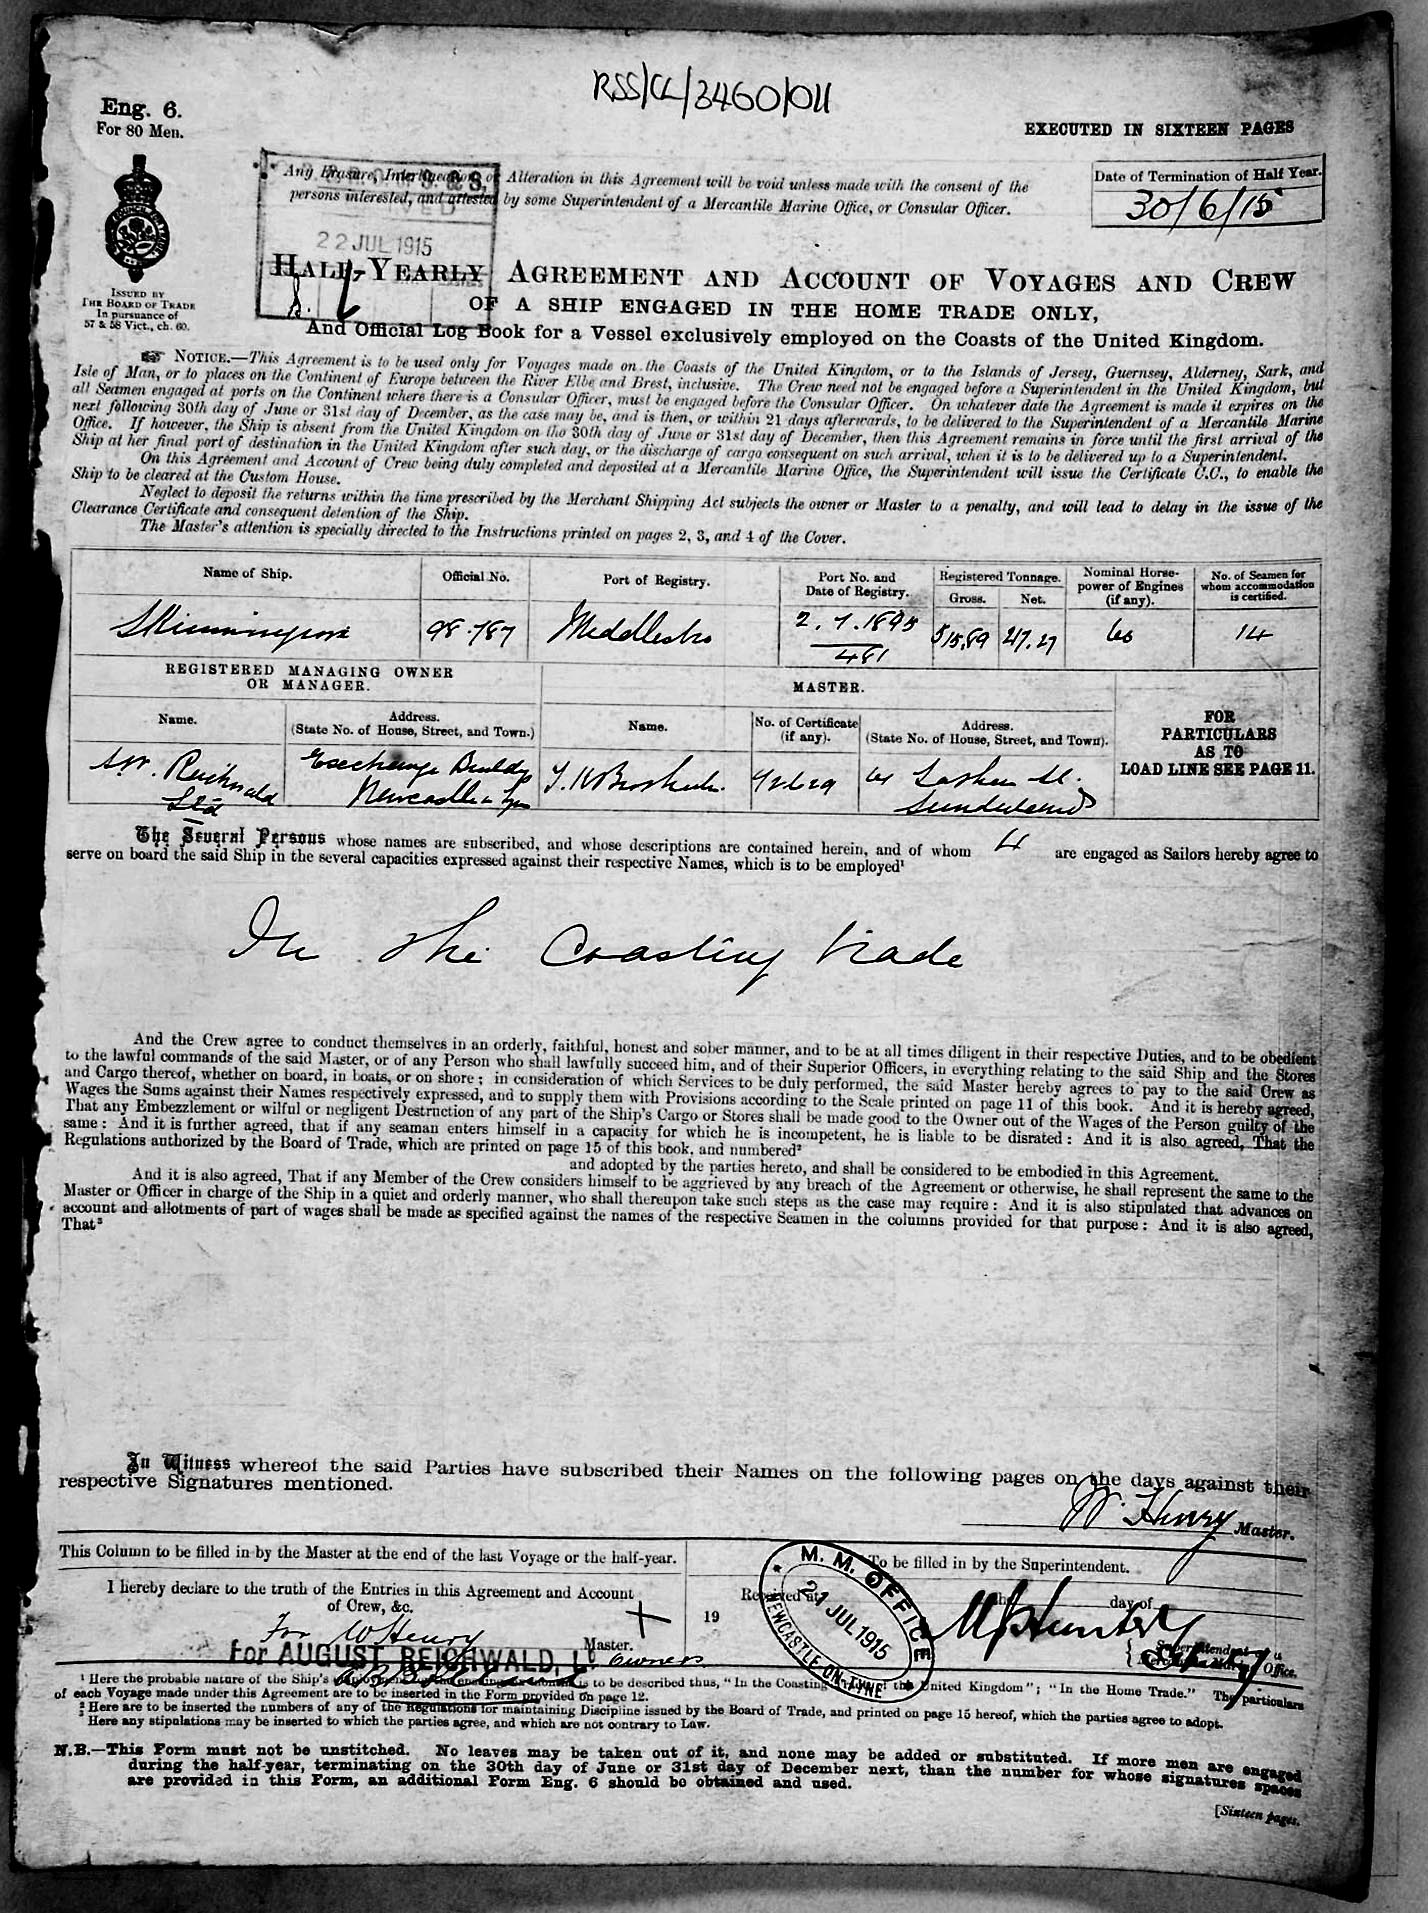 RSS/CL/3460/011
Eng. 6.
For 80 Men.
EXECUTED IN SIXTEEN PAGES
Any Erasure, Interlineation, or Alteration in this Agreement will be void unless made with the consent of the
persons interested, and attested by some Superintendent of a Mercantile Marine Office, or Consular Officer.
Date of Termination of Half Year.
30/6/15
22 JUL 1915
ISSUED BY
THE BOARD OF TRADE
In pursuance of
57 & 58 Vict., ch. 60.
HALF-YEARLY AGREEMENT AND ACCOUNT OF VOYAGES AND CREW
OF A SHIP ENGAGED IN THE HOME TRADE ONLY,
And Official Log Book for a Vessel exclusively employed on the Coasts of the United Kingdom.
NOTICE.—This Agreement is to be used only for Voyages made on the Coasts of the United Kingdom, or to the Islands of Jersey, Guernsey, Alderney, Sark, and
Isle of Man, or to places on the Continent of Europe between the River Elbe and Brest, inclusive. The Crew need not be engaged before a Superintendent in the United Kingdom, but
all Seamen engaged at ports on the Continent where there is a Consular Officer, must be engaged before the Consular Officer. On whatever date the Agreement is made it expires on the
next following 30th day of June or 31st day of December, as the case may be, and is then, or within 21 days afterwards, to be delivered to the Superintendent of a Mercantile Marine
Office. If however, the Ship is absent from the United Kingdom on the 30th day of June or 31st day of December, then this Agreement remains in force until the first arrival of the
Ship at her final port of destination in the United Kingdom after such day, or the discharge of cargo consequent on such arrival, when it is to be delivered up to a Superintendent.
On this Agreement and Account of Crew being duly completed and deposited at a Mercantile Marine Office, the Superintendent will issue the Certificate C.C., to enable the
Ship to be cleared at the Custom House.
Neglect to deposit the returns within the time prescribed by the Merchant Shipping Act subjects the owner or Master to a penalty, and will lead to delay in the issue of the
Clearance Certificate and consequent detention of the Ship.
The Master's attention is specially directed to the Instructions printed on pages 2, 3, and 4 of the Cover.
Name of Ship. Official No. Port of Registry. Port No. and Date of Registry. Registered Tonnage. Gross. Net. Nominal Horse-power of Engines (if any). No. of Seamen for whom accommodation is certified.
Skinningrove 98.787 Middlesbro 2.7.1895 481 515.89 217.27 60 14
REGISTERED MANAGING OWNER
OR MANAGER.
MASTER.
Name. Address. (State No. of House, Street, and Town.) Name. No. of Certificate (if any). Address. (State No. of House, Street, and Town).
FOR
PARTICULARS
AS TO
LOAD LINE SEE PAGE 11.
Reichwald Ltd Exchange Buildgs Newcastle Sunderland
The Several Persons whose names are subscribed, and whose descriptions are contained herein, and of whom 4 are engaged as Sailors hereby agree to
serve on board the said Ship in the several capacities expressed against their respective Names, which is to be employed¹
In the Coasting trade
And the Crew agree to conduct themselves in an orderly, faithful, honest and sober manner, and to be at all times diligent in their respective Duties, and to be obedient
to the lawful commands of the said Master, or of any Person who shall lawfully succeed him, and of their Superior Officers, in everything relating to the said Ship and the Stores
and Cargo thereof, whether on board, in boats, or on shore; in consideration of which Services to be duly performed, the said Master hereby agrees to pay to the said Crew as
Wages the Sums against their Names respectively expressed, and to supply them with Provisions according to the Scale printed on page 11 of this book. And it is hereby agreed,
That any Embezzlement or wilful or negligent Destruction of any part of the Ship's Cargo or Stores shall be made good to the Owner out of the Wages of the Person guilty of the
same: And it is further agreed, that if any seaman enters himself in a capacity for which he is incompetent, he is liable to be disrated: And it is also agreed, That the
Regulations authorized by the Board of Trade, which are printed on page 15 of this book, and numbered²
and adopted by the parties hereto, and shall be considered to be embodied in this Agreement.
And it is also agreed, That if any Member of the Crew considers himself to be aggrieved by any breach of the Agreement or otherwise, he shall represent the same to the
Master or Officer in charge of the Ship in a quiet and orderly manner, who shall thereupon take such steps as the case may require: And it is also stipulated that advances on
account and allotments of part of wages shall be made as specified against the names of the respective Seamen in the columns provided for that purpose: And it is also agreed,
That³
In Witness whereof the said Parties have subscribed their Names on the following pages on the days against their
respective Signatures mentioned.
W. Henry Master.
This Column to be filled in by the Master at the end of the last Voyage or the half-year.
To be filled in by the Superintendent.
I hereby declare to the truth of the Entries in this Agreement and Account
of Crew, &c.
For W Henry Master.
For AUGUST REICHWALD, Ld owners
19
Received at the day of
M. M. OFFICE
21 JUL 1915
NEWCASTLE-ON-TYNE
Superintendent
Office.
¹ Here the probable nature of the Ship's is to be described thus, "In the Coasting United Kingdom"; "In the Home Trade." The particulars
of each Voyage made under this Agreement are to be inserted in the Form provided on page 12.
² Here are to be inserted the numbers of any of the Regulations for maintaining Discipline issued by the Board of Trade, and printed on page 15 hereof, which the parties agree to adopt.
³ Here any stipulations may be inserted to which the parties agree, and which are not contrary to Law.
N.B.—This Form must not be unstitched. No leaves may be taken out of it, and none may be added or substituted. If more men are engaged
during the half-year, terminating on the 30th day of June or 31st day of December next, than the number for whose signatures spaces
are provided in this Form, an additional Form Eng. 6 should be obtained and used.
[Sixteen pages.